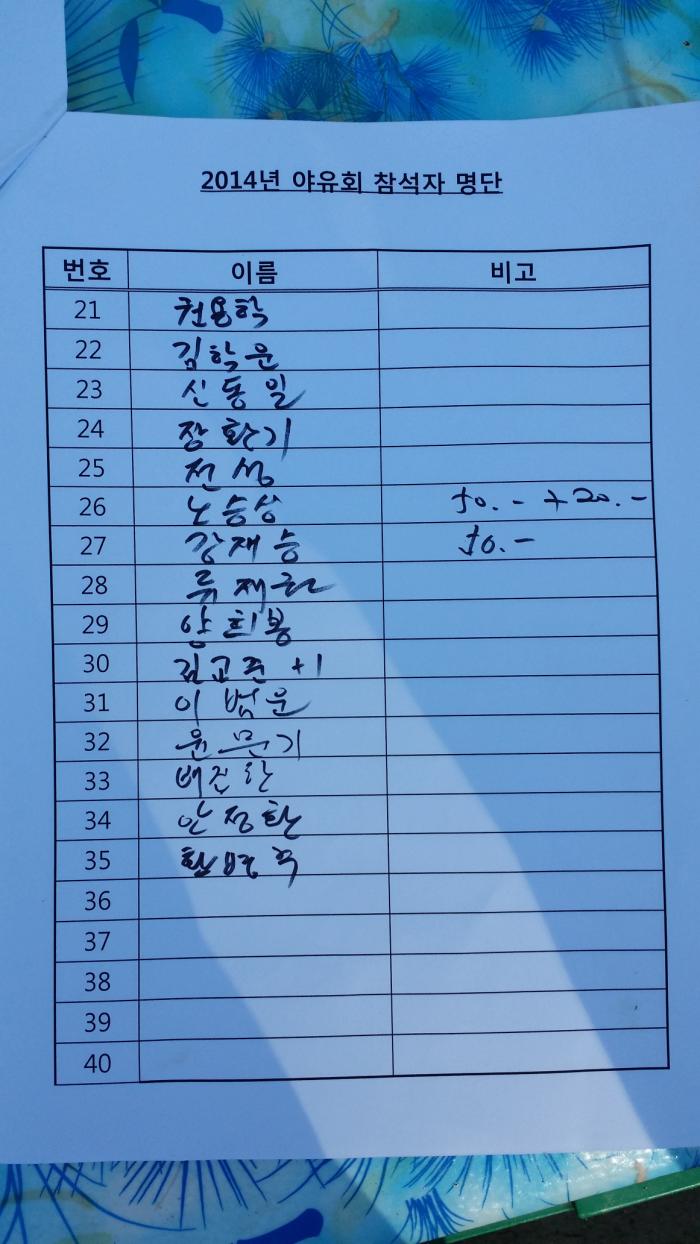 2014년 야유회 참석자 명단
번호 이름 비고
21 권용학
22 김학운
23 신동일
24 장환기
25 전성
26 노승상 50.- +20.-
27 강재승 50.-
28 류재
29 양희봉
30 김교준 +1
31 이범운
32 윤문기
33 배진한
34 안정환
35
36
37
38
39
40